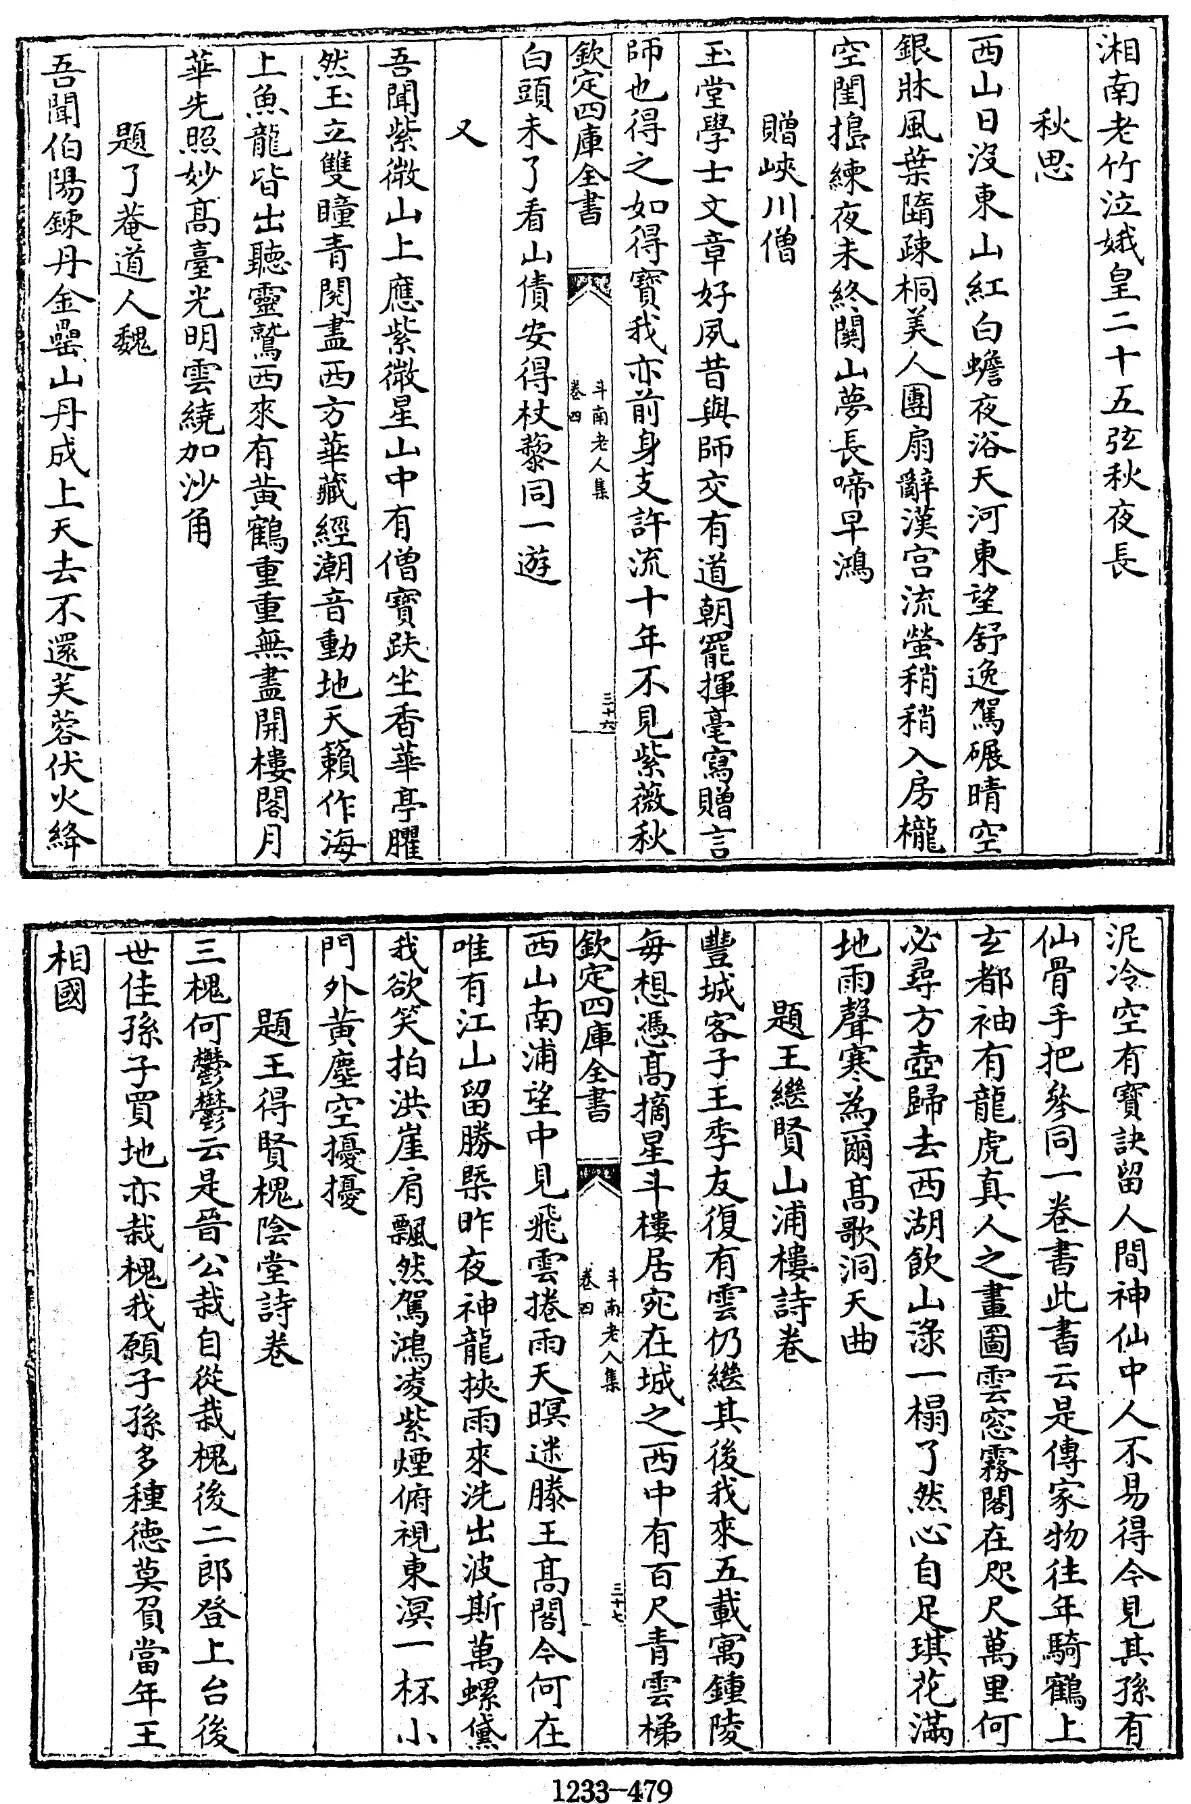 湘南老竹泣娥皇二十五弦秋夜長
秋思
西山日沒東山紅白蟾夜浴天河東望舒逸駕碾晴空
銀牀風葉隋疎桐美人團扇辭漢宫流螢稍稍入房櫳
空閨搗練夜未終關山夢長啼早鴻
贈峽川僧
玉堂學士文章好夙昔與師交有道朝罷揮毫寫贈言
師也得之如得寳我亦前身支許流十年不見紫薇秋
欽定四庫全書
斗南老人集
卷四
三十六
白頭未了看山債安得杖藜同一遊
又
吾聞紫微山上應紫微星山中有僧寳趺坐香華亭臞
然玉立雙瞳青閱盡西方華藏經潮音動地天籟作海
上魚龍皆出聽靈鷲西來有黄鶴重重無盡開樓閣月
華先照妙高臺光明雲繞加沙角
題了菴道人魏
吾聞伯陽鍊丹金罍山丹成上天去不還芙蓉伏火絳
泥冷空有寳訣留人間神仙中人不易得今見其孫有
仙骨手把參同一卷書此書云是傳家物往年騎鶴上
玄都袖有龍虎真人之畫圖雲窓霧閣在咫尺萬里何
必尋方壺歸去西湖飲山淥一榻了然心自足琪花滿
地雨聲寒為爾髙歌洞天曲
題王繼賢山浦樓詩卷
豐城客子王季友復有雲仍繼其後我來五載寓鍾陵
每想憑髙摘星斗樓居宛在城之西中有百尺青雲梯
欽定四庫全書
斗南老人集
卷四
三十七
西山南浦望中見飛雲捲雨天暝迷滕王髙閣今何在
唯有江山留勝槩昨夜神龍挾雨來洗出波斯萬螺黛
我欲笑拍洪崖肩飄然駕鴻凌紫煙俯視東溟一杯小
門外黄塵空擾擾
題王得賢槐陰堂詩卷
三槐何鬱鬱云是晉公栽自從栽槐後二郎登上台後
世佳孫子買地亦栽槐我願子孫多種德莫負當年王
相國
1233-479